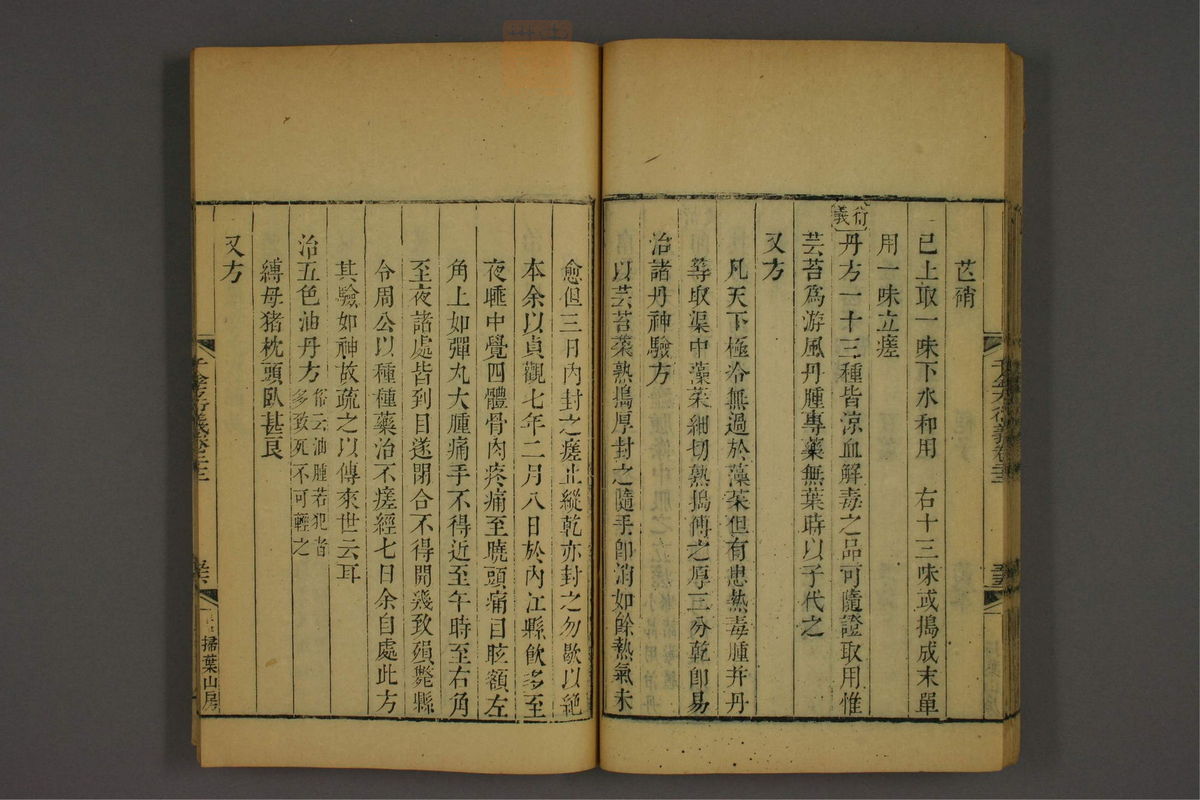 芒硝
已上取一味下水和用 右十三味或搗成末單
用一味立瘥
衍義
丹方一十三種皆涼血解毒之品可隨證取用惟
芸苔爲游風丹腫專藥無葉時以子代之
又方
凡天下極冷無過於藻菜但有患熱毒腫并丹
等取渠中藻菜細切熟搗傅之厚三分乾卽易
治諸丹神驗方
以芸苔菜熟搗厚封之隨手卽消如餘熱氣未
愈但三日內封之瘥止縱乾亦封之勿歇以絕
本余以貞觀七年二月八日於內江縣飲多至
夜睡中覺四體骨肉疼痛至曉頭痛目眩額左
角上如彈丸大腫痛手不得近至午時至右角
至夜諸處皆到目遂閉合不得開幾致殞斃縣
令周公以種種藥治不瘥經七日余自處此方
其驗如神故疏之以傳來世云耳
治五色油丹方俗云油腫若犯者多致死不可輕之
縛母猪枕頭臥甚良
又方
千金方衍義卷
掃葉山房